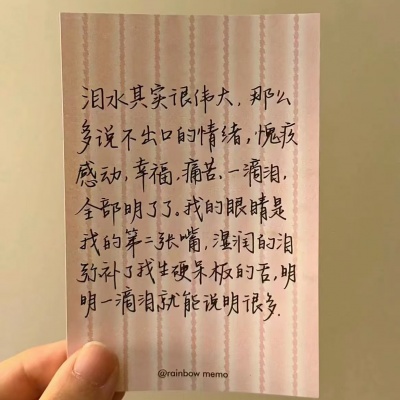 泪水其实很伟大,那么
多说不出口的情绪,愧疚
感动,幸福,痛苦,一滴泪,
全部明了了。我的眼睛是
我的第二张嘴,湿润的泪
弥补了我生硬呆板的舌,明
明一滴泪就能说明很多.
@rainbow memo